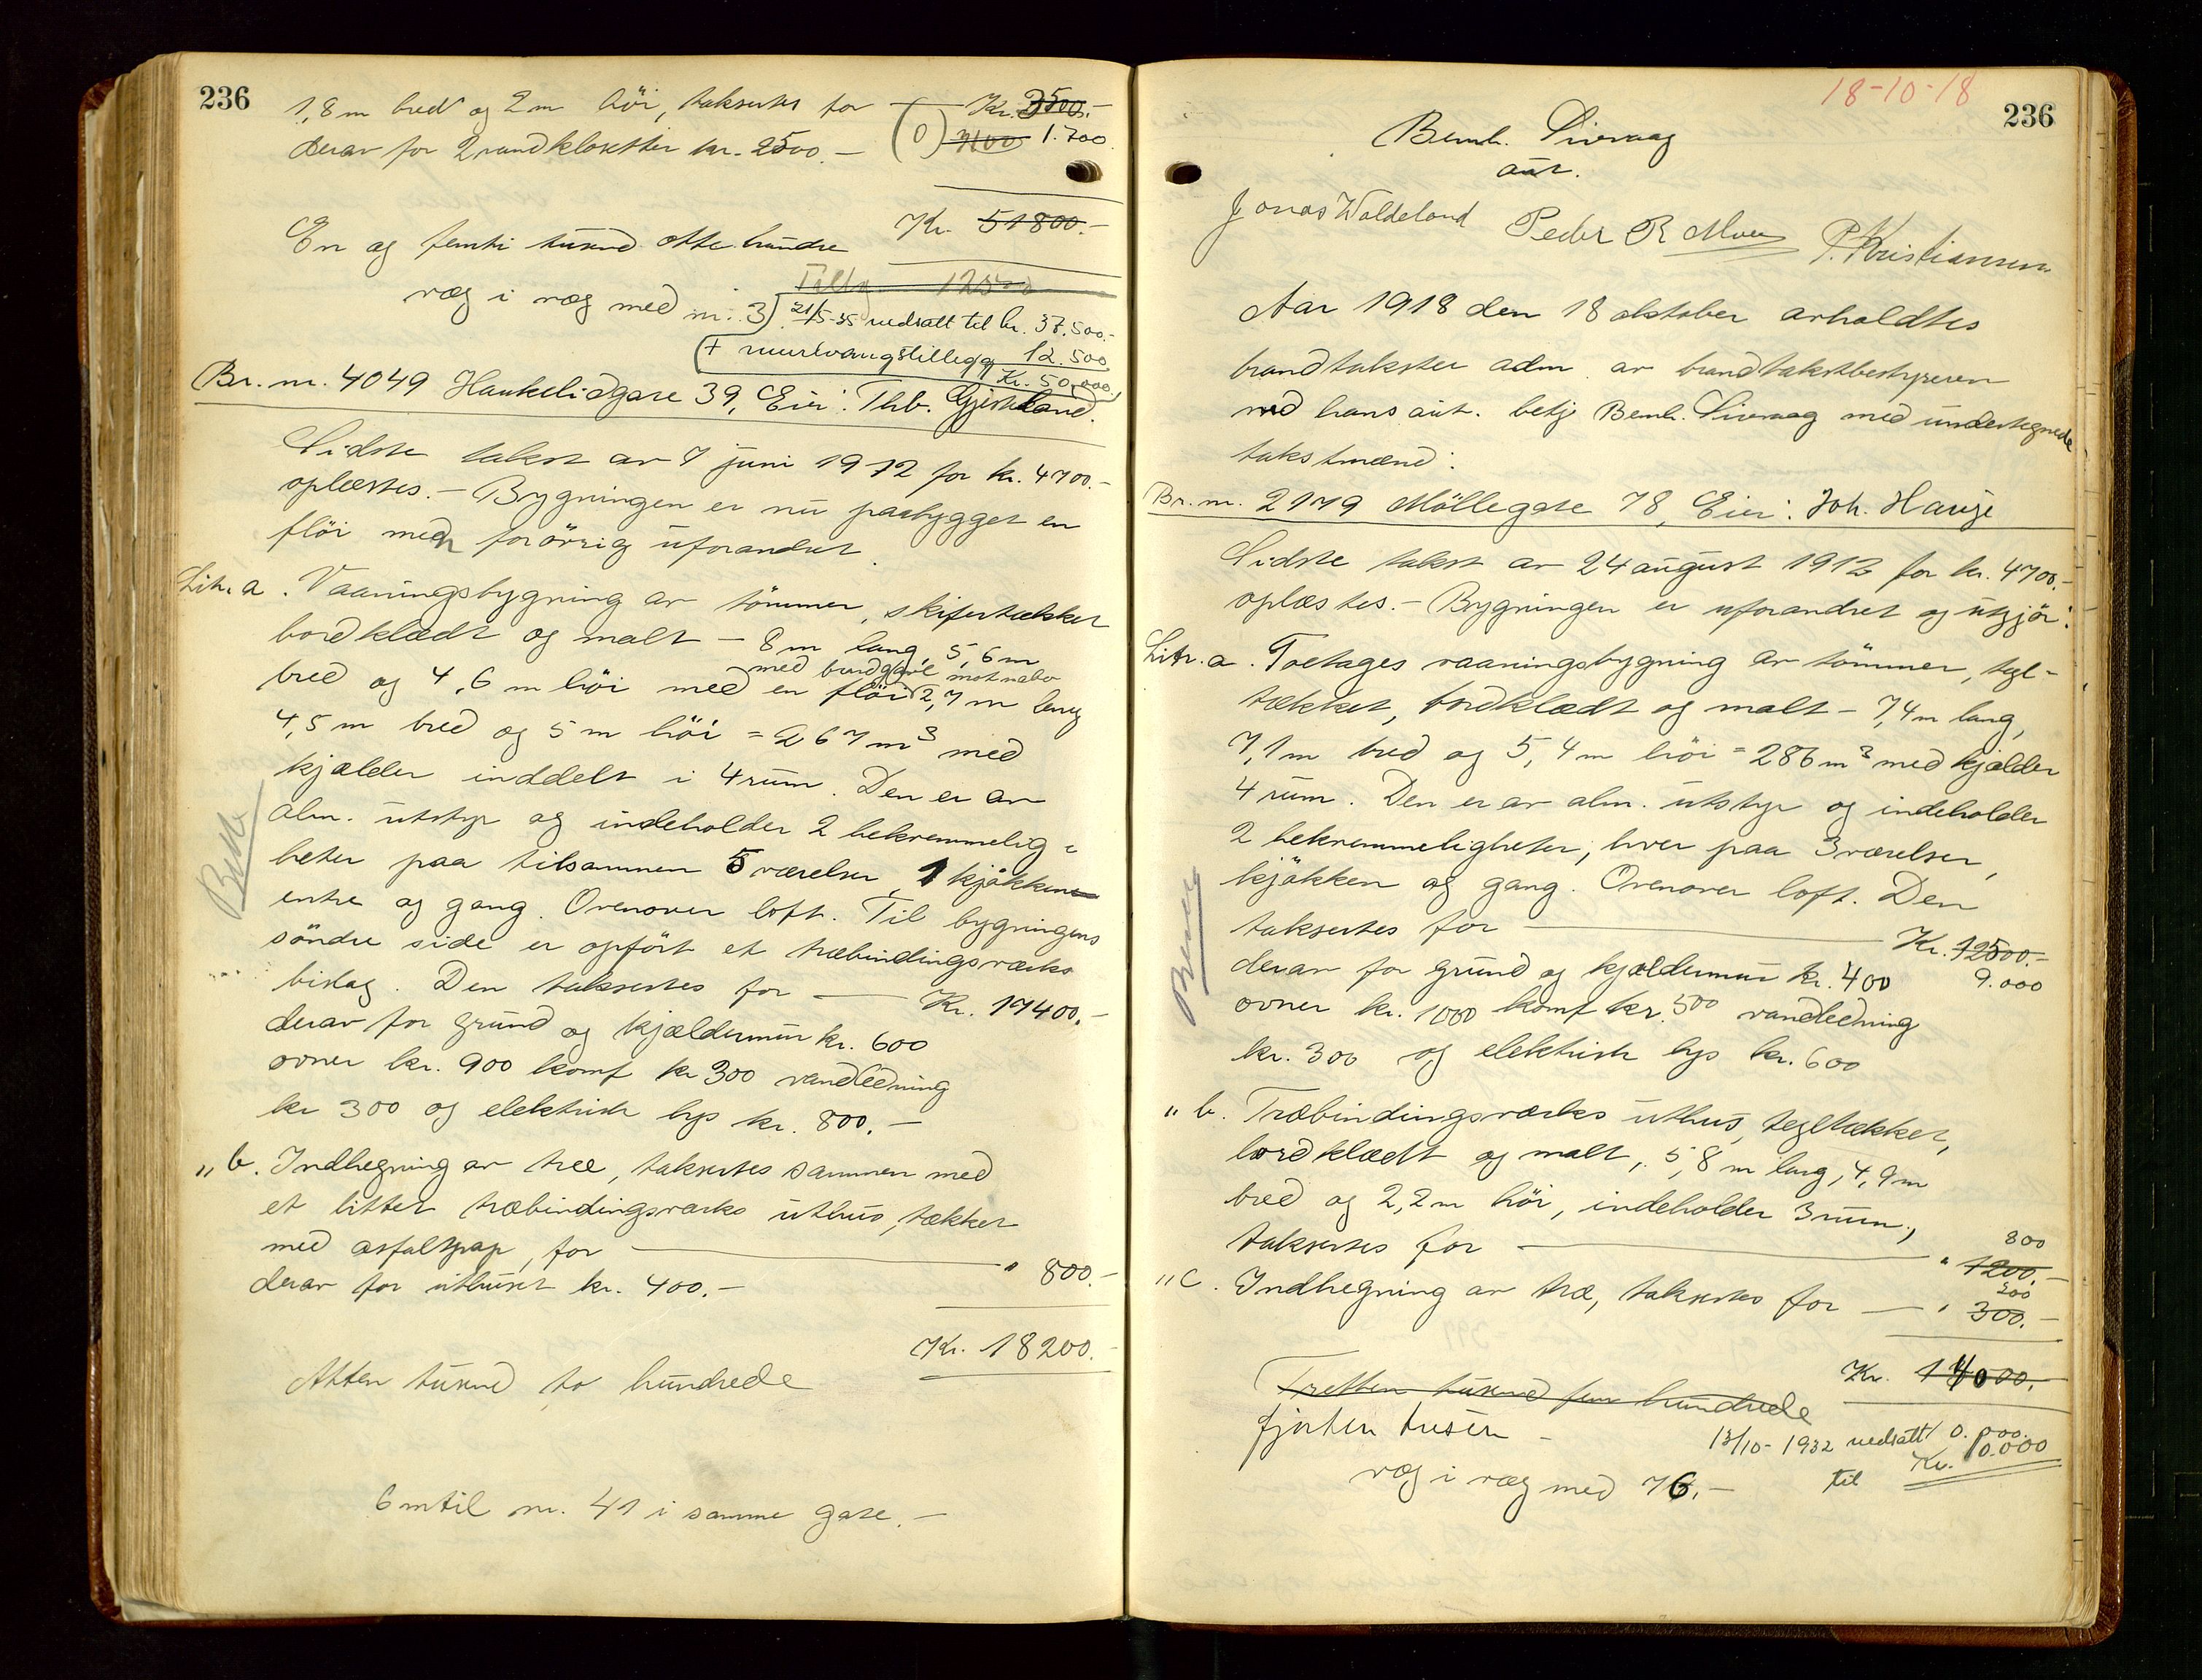 236
1,8 m bred og 2 m höi, taksertes for — Kr. 3500.-
derav for 2 vandklosetter kr. 2500.— (0) 3100 1.700
Kr. 51800.-
En og femti tusend otte hundre
Tillæg 12500
væg i væg med nr. 3) 21/5-35 nedsatt til kr. 37.500.-
+ murtvangstillegg 12.500
Kr. 50.000,
Br. nr. 4049 Haukelidgate 39, Eier: Thb. Gjesteland.
Sidste takst av 7 juni 1912 for kr. 4700.-
oplæstes.- Bygningen er nu paabygget en
flöi men forövrig uforandret.
Litr. a. Vaaningsbygning av tömmer, skifertækket
bordklædt og malt - 8 m lang, 5,6 m
med brandgavl mot nabo
bred og 4,6 m höi med en flöi 2,7 m lang
4,5 m bred og 5 m höi = 267 m³ med
kjælder inddelt i 4 rum. Den er av
alm. utstyr og indeholder 2 bekvemmelig-
heter paa tilsammen 5 værelser, 1 kjökken
entre og gang. Ovenover loft. Til bygningens
söndre side er opfört et træbindingsverks
bislag. Den taksertes for — Kr. 17400.-
derav for grund og kjældermur kr. 600
ovner kr. 900 komf kr 300 vandledning
kr 300 og elektrisk lys kr. 800.-
" b. Indhegning av træ, taksertes sammen med
et litet træbindingsverks uthus, tækket
med asfaltpap, for — " 800.-
derav for uthuset kr. 400.-
Kr. 18200.-
Atten tusend to hundrede
6 m til nr. 41 i samme gate.-
18-10-18
236
Bernh. Sivraag
aut.
Jonas Waldeland Peder R Moe P. Kristiansen
Aar 1918 den 18 oktober avholdtes
brandtakster adm. av brandtakstbestyreren
ved hans aut. betj Bernh. Sivraag med undertegnede
takstmænd:
Br. nr. 2179 Möllegate 78, Eier: Joh. Hauge
Sidste takst av 24 august 1912 for kr. 4700.-
oplæstes.- Bygningen er uforandret og utgjör:
Litr. a. Toetages vaaningsbygning av tömmer, tegl-
tækket, bordklædt og malt - 7,4 m lang,
7,1 m bred og 5,4 m höi = 286 m³ med kjælder
4 rum. Den er av alm. utstyr og indeholder
2 bekvemmeligheter, hver paa 3 værelser,
kjökken og gang. Ovenover loft. Den
taksertes for — Kr. 12500.-
derav for grund og kjældermur kr. 400 9.000
ovner kr. 1000 komf kr. 500 vandledning
kr. 300 og elektrisk lys kr. 600
" b. Træbindingsverks uthus, tegltækket,
bordklædt og malt, 5,8 m lang, 4,9 m
bred og 2,2 m höi, indeholder 3 rum,
800
taksertes for — " 1200.-
200
" c. Indhegning av træ, taksertes for — " 300.-
Kr. 14000.
Tretten tusend fem hundrede
fjorten tusen -
13/10-1932 nedsatt
til Kr. 10.000
væg i væg med 76.-